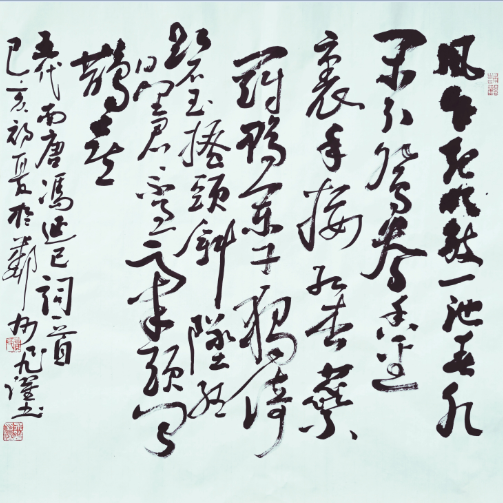 风乍起吹皱一池春水
闲引鸳鸯香径
裏手挼红杏蕊
鬭鸭阑干独倚
碧玉搔头斜坠终
日望君君不至举头闻
鹊喜
五代南唐冯延巳词一首
己亥初夏於郑州